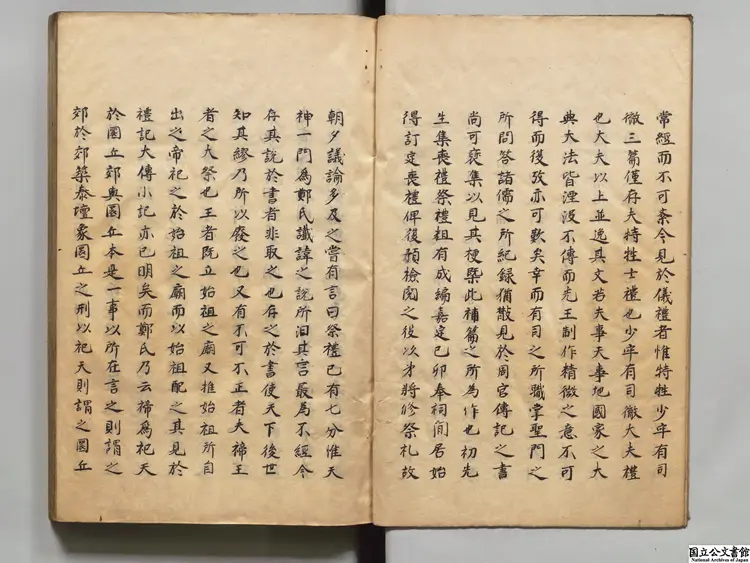 常經而不可紊今見於儀禮者惟特牲少牢有司
徹三篇僅存夫特牲士禮也少牢有司徹大夫禮
也大夫以上並逸其文若夫事天事地國家之大
典大法皆湮沒不傳而先王制作精微之意不可
得而後攷亦可歎矣幸而有司之所職掌聖門之
所問答諸儒之所紀録猶散見於周官傳記之書
尚可裒集以見其梗槩此補篇之所為作也初先
生集喪禮祭禮粗有成編嘉定己卯奉祠間居始
得訂定喪禮俾復預檢閱之後以才將修祭礼故
朝夕議論多及之嘗有言曰祭禮已有七分惟天
神一門為鄭氏讖諱之說所汩其言最為不經今
存其說於書者非取之也存之於書使天下後世
知其繆乃所以廢之也又有不可不正者夫禘王
者之大祭也王者既立始祖之廟又推始祖所自
出之帝祀之於始祖之廟而以始祖配之其見於
禮記大傳小記亦已明矣而鄭氏乃云禘為祀天
於圜丘郊與圜丘本是一事以所在言之則謂之
郊於郊築泰壇象圜丘之刑以祀天則謂之圜丘
国立公文書館
National Archives of Japan